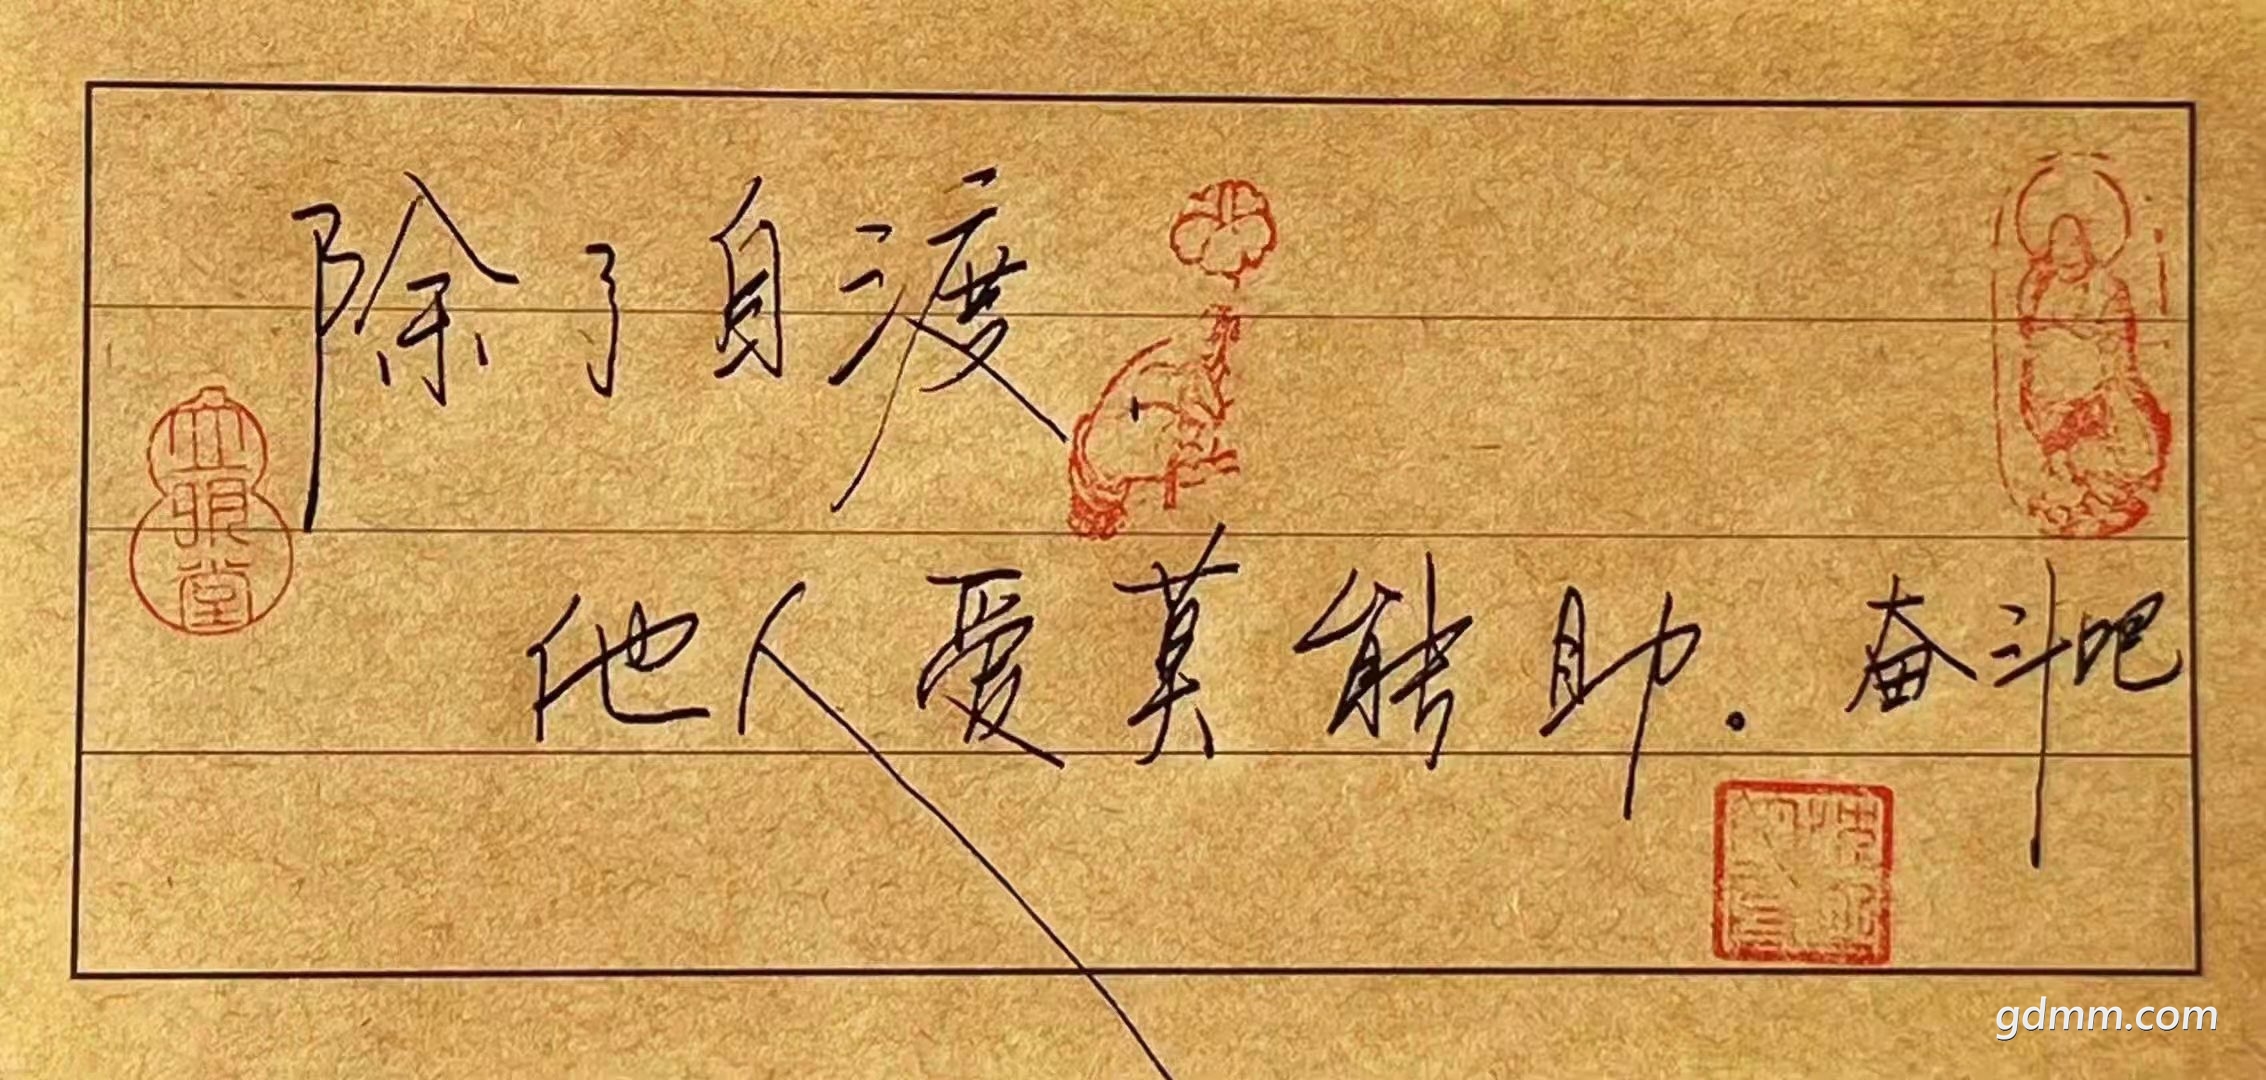 除了自渡
他人爱莫能助.奋斗吧
gdmm.com